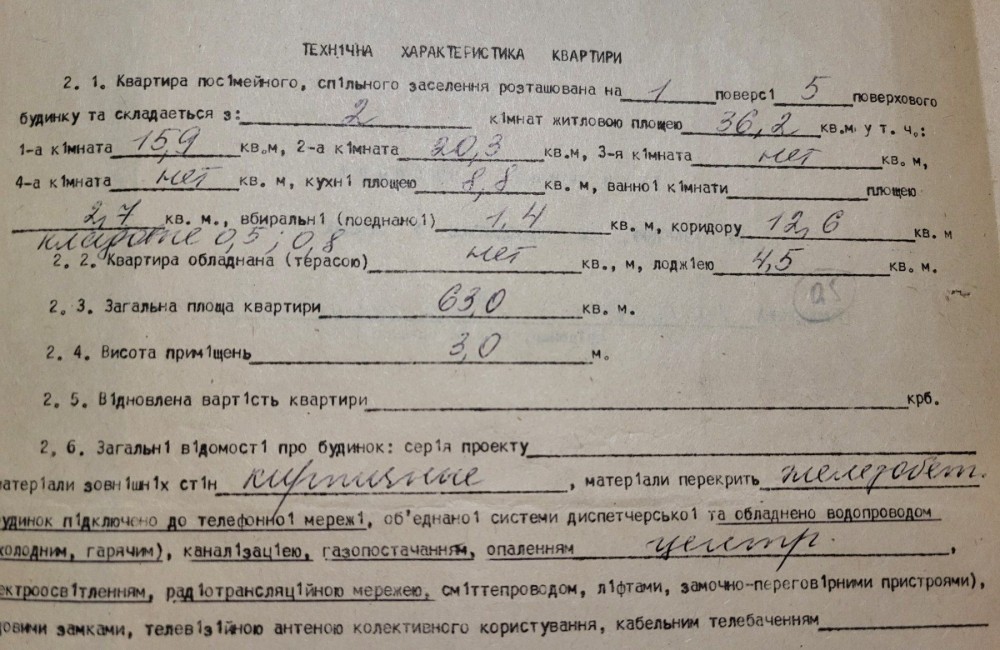 ТЕХН1ЧНА ХАРАКТЕРИСТИКА КВАРТИРИ
2. 1. Квартира пос1мейного, сп1льного заселення розташована на 1 поверс1 5 поверхового
будинку та складаеться з: 2 к1мнат житловою площею 36,2 кв.м. у т. ч.:
1-а к1мната 15,9 кв.м, 2-а к1мната 20,3 кв.м, 3-я к1мната нет кв. м,
4-а к1мната нет кв. м, кухн1 площею 8,8 кв. м, ванно1 к1мнати площею
2,7 кв. м., вбиральн1 (поеднано1) 1,4 кв. м, коридору 12,6 кв. м
кладовые 0,5; 0,8
2. 2. Квартира обладнана (терасою) нет кв., м, лодж1ею 4,5 кв. м.
2. 3. Загальна площа квартири 63,0 кв. м.
2. 4. Висота прим1щень 3,0 м.
2. 5. В1дновлена варт1сть квартири крб.
2, 6. Загальн1 в1домост1 про будинок: сер1я проекту
матер1али зовн1шн1х ст1н кирпичные, матер1али перекрить железобет.
удинок п1дключено до телефонно1 мереж1, об'еднано1 системи диспетчерсько1 та обладнено водопроводом
холодним, гарячим), канал1зац1ею, газопостачанням, опаленням центр.,
ектроосв1тленням, рад1отрансляц1йною мережею, см1ттепроводом, л1фтами, замочно-перегов1рними пристроями),
довими замками, телев1з1йною антеною колективного користування, кабельним телебаченням